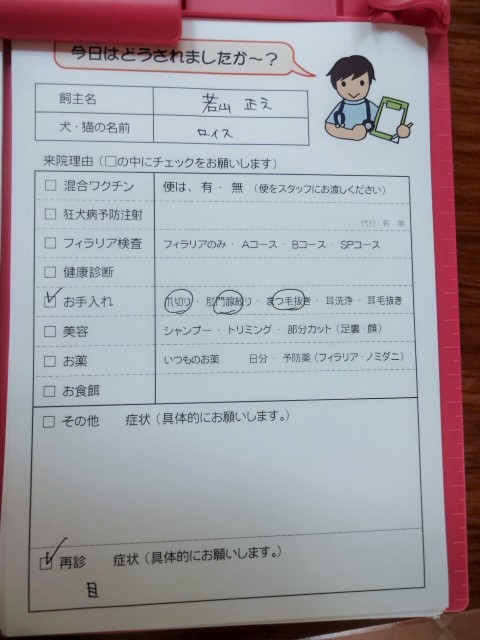 今日はどうされましたか〜？
飼主名 若山 正え
犬・猫の名前 ロイス
来院理由（□の中にチェックをお願いします）
□ 混合ワクチン 便は、有・無 （便をスタッフにお渡しください）
□ 狂犬病予防注射
代行 有 無
□ フィラリア検査 フィラリアのみ・Aコース・Bコース・SPコース
□ 健康診断
☑ お手入れ 爪切り・肛門腺絞り・まつ毛抜き・耳洗浄・耳毛抜き
□ 美容 シャンプー・トリミング・部分カット（足裏・顔）
□ お薬 いつものお薬 日分・予防薬（フィラリア・ノミダニ）
□ お食餌
□ その他 症状（具体的にお願いします。）
☑ 再診 症状（具体的にお願いします。）
目